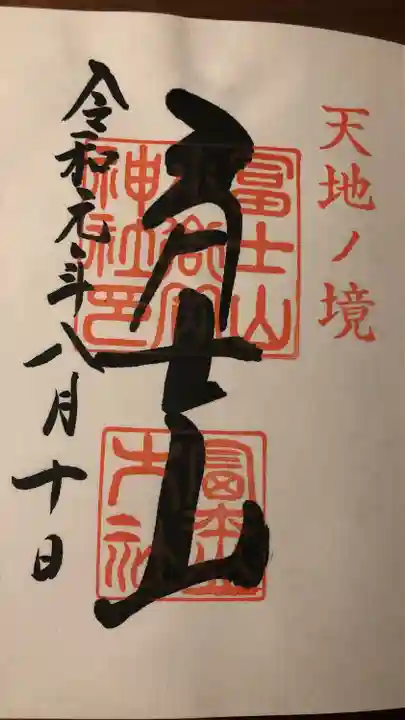 天地ノ境
冨士山
冨士山
神社印
令和元年八月十日